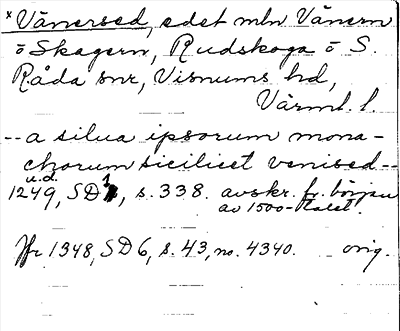 x Vänersed, edet mln Vänern
o Skagern, Rudskoga o S.
Råda snr, Visnums hd,
Värml. l.
-- a silua ipsorum mona-
chorum sicilicet venised --
u.d.
1249, SD 1, s. 338. avskr. fr. början
av 1500-talet.
Jfr 1348, SD 6, s. 43, no. 4340. orig.